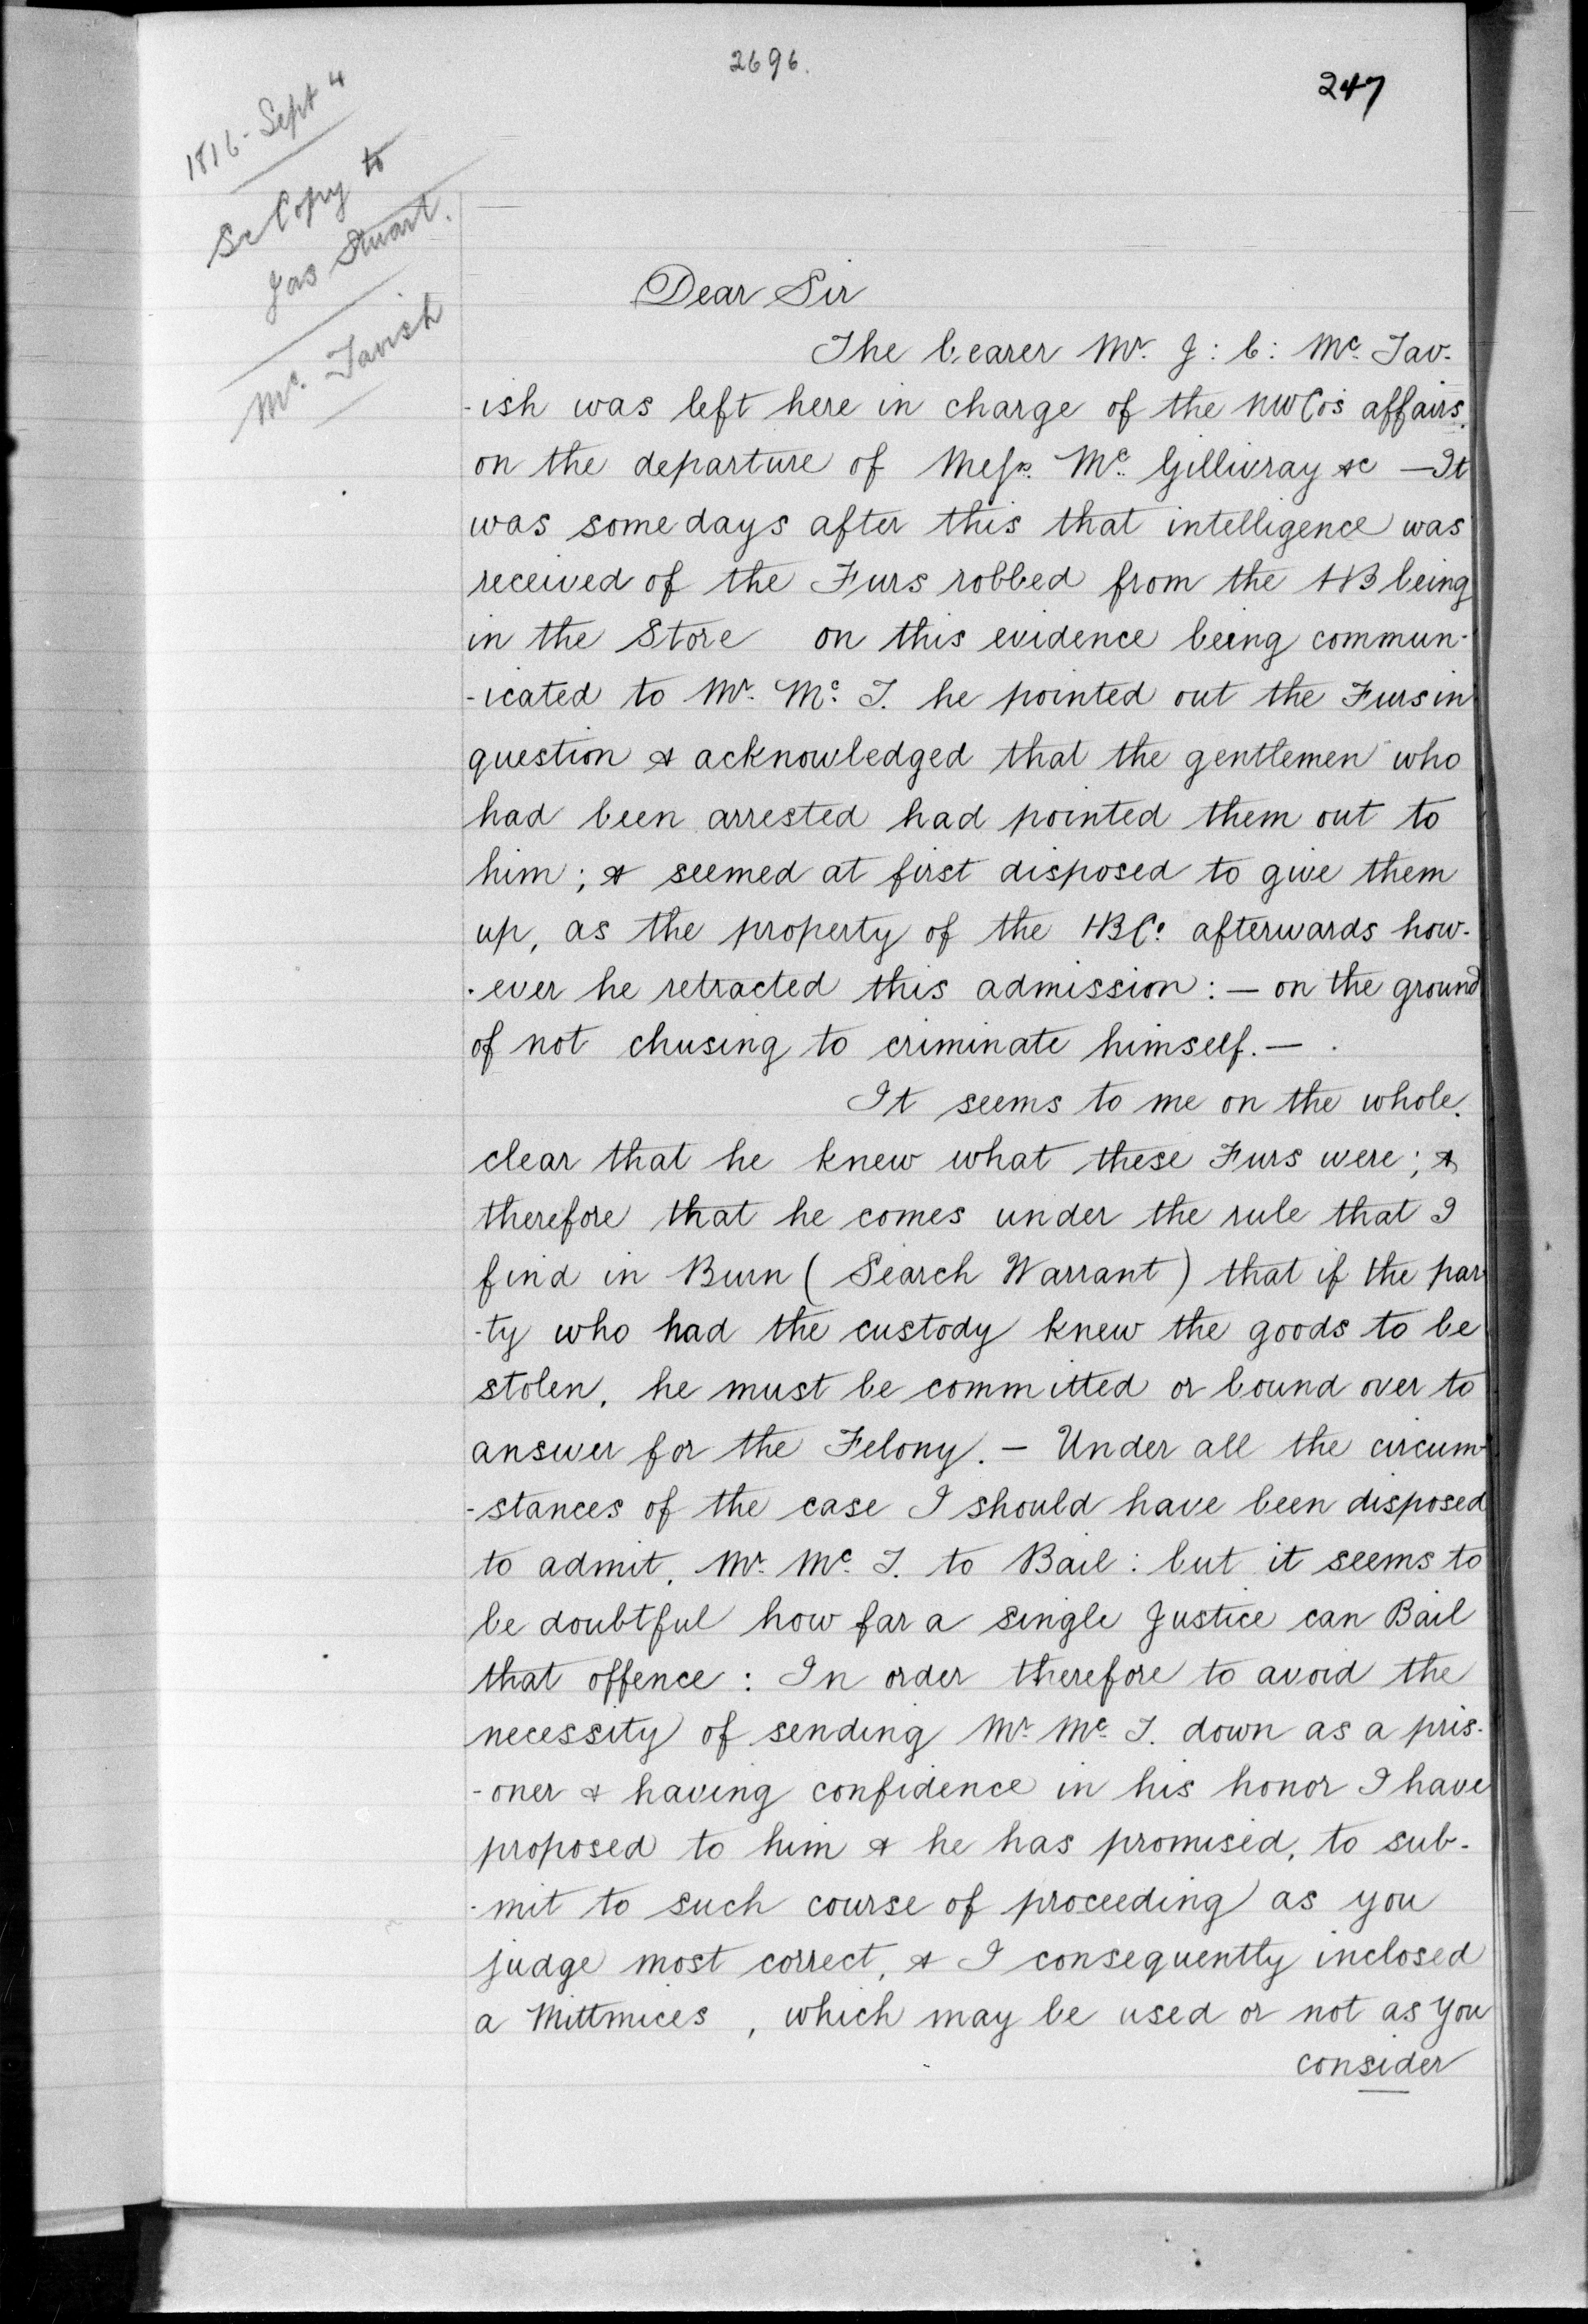 2696.
247
1816 - Sept 4
Se Copy to
Jas Stuart.
Mc. Tavish
Dear Sir
The bearer Mr. J: C: Mc. Tav-
-ish was left here in charge of the NWCo's affairs.
on the departure of Messrs. Mc. Gillivray &c — It
was some days after this that intelligence was
received of the Furs robbed from the HB being
in the Store on this evidence being commun-
-icated to Mr. Mc. T. he pointed out the Furs in
question & acknowledged that the gentlemen who
had been arrested had pointed them out to
him; & seemed at first disposed to give them
up, as the property of the HBCo. afterwards how-
-ever he retracted this admission: — on the ground
of not chusing to criminate himself. —
It seems to me on the whole.
clear that he knew what these Furs were; &
therefore that he comes under the rule that I
find in Burn (Search Warrant) that if the par
-ty who had the custody knew the goods to be
stolen, he must be committed or bound over to
answer for the Felony. — Under all the circum-
-stances of the case I should have been disposed
to admit, Mr. Mc. T. to Bail: but it seems to
be doubtful how far a single Justice can Bail
that offence: In order therefore to avoid the
necessity of sending Mr. Mc. T. down as a pris-
-oner & having confidence in his honor I have
proposed to him & he has promised, to sub-
-mit to such course of proceeding as you
judge most correct, & I consequently inclosed
a Mittmices, which may be used or not as you
consider